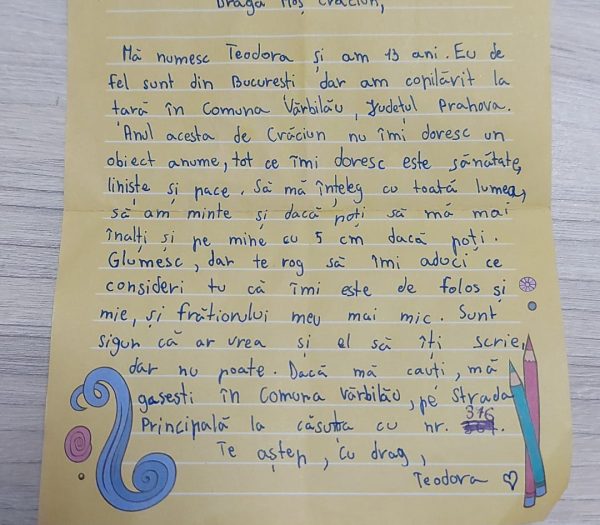 Dragă Moș Crăciun,
Mă numesc Teodora și am 13 ani. Eu de
fel sunt din București dar am copilărit la
țară în Comuna Vărbilău, Județul Prahova.
Anul acesta de Crăciun nu îmi doresc un
obiect anume, tot ce îmi doresc este sănătate,
liniște și pace. Să mă înțeleg cu toată lumea,
să am minte și dacă poți să mă mai
înalți și pe mine cu 5 cm dacă poți.
Glumesc, dar te rog să îmi aduci ce
consideri tu că îmi este de folos și
mie, și frățiorului meu mai mic. Sunt
sigur că ar vrea și el să îți scrie,
dar nu poate. Dacă mă cauți, mă
gasesti în Comuna Vărbilău, pe Strada
Principală la căsuța cu nr. 316.
Te aștep, cu drag,
Teodora ♡